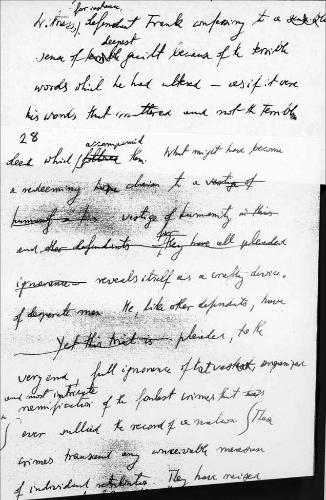 for instance,
Witness, defendant Frank confessing to a
deepest
sense of terrible guilt because of the terrible
words which he had uttered – as if it were
his words that mattered and not the terrible
28
accompanied
deed which followed them. What might have become
a redeeming hope claim to a vestige of
humanity in this vestige of humanity in this
and other defendants – They have all pleaded
ignorance – reveals itself as a crafty device
of desperate men. He, like other defendants, have
Yet this trial is pleaded, to the
very end full ignorance of that vast, organized
and most intricate
ramification of the foulest crimes that
ever sullied the record of a nation. These
crimes transcend any conceivable measure
of individual retribution. They have